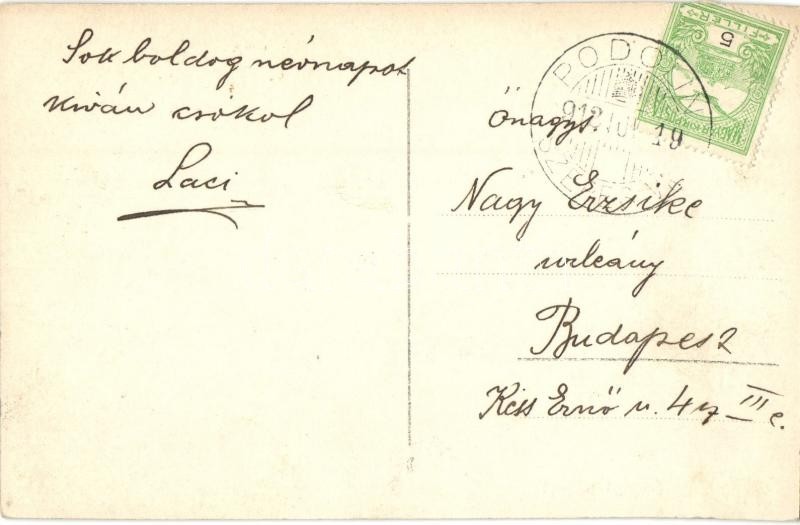 Sok boldog névnapot
kíván csókol
Laci
Őnagys.
Nagy Erzsike
urleány
Budapest
Kiss Ernő u. 4 sz III e.
PODOLIN
912
19
5
FILLÉR
MAGYAR KIR. POSTA